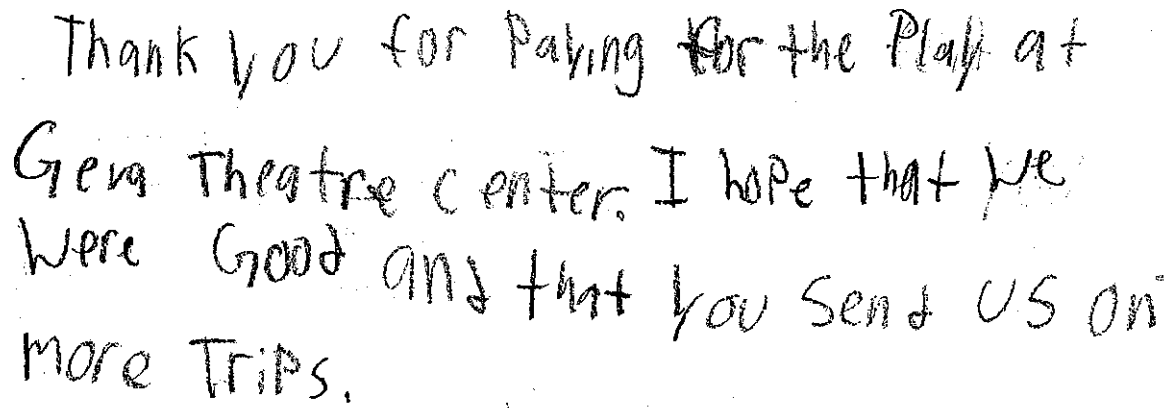 Thank you for Paying for the Play at
Geva Theatre center. I hope that we
were Good and that you Send US on
more Trips.